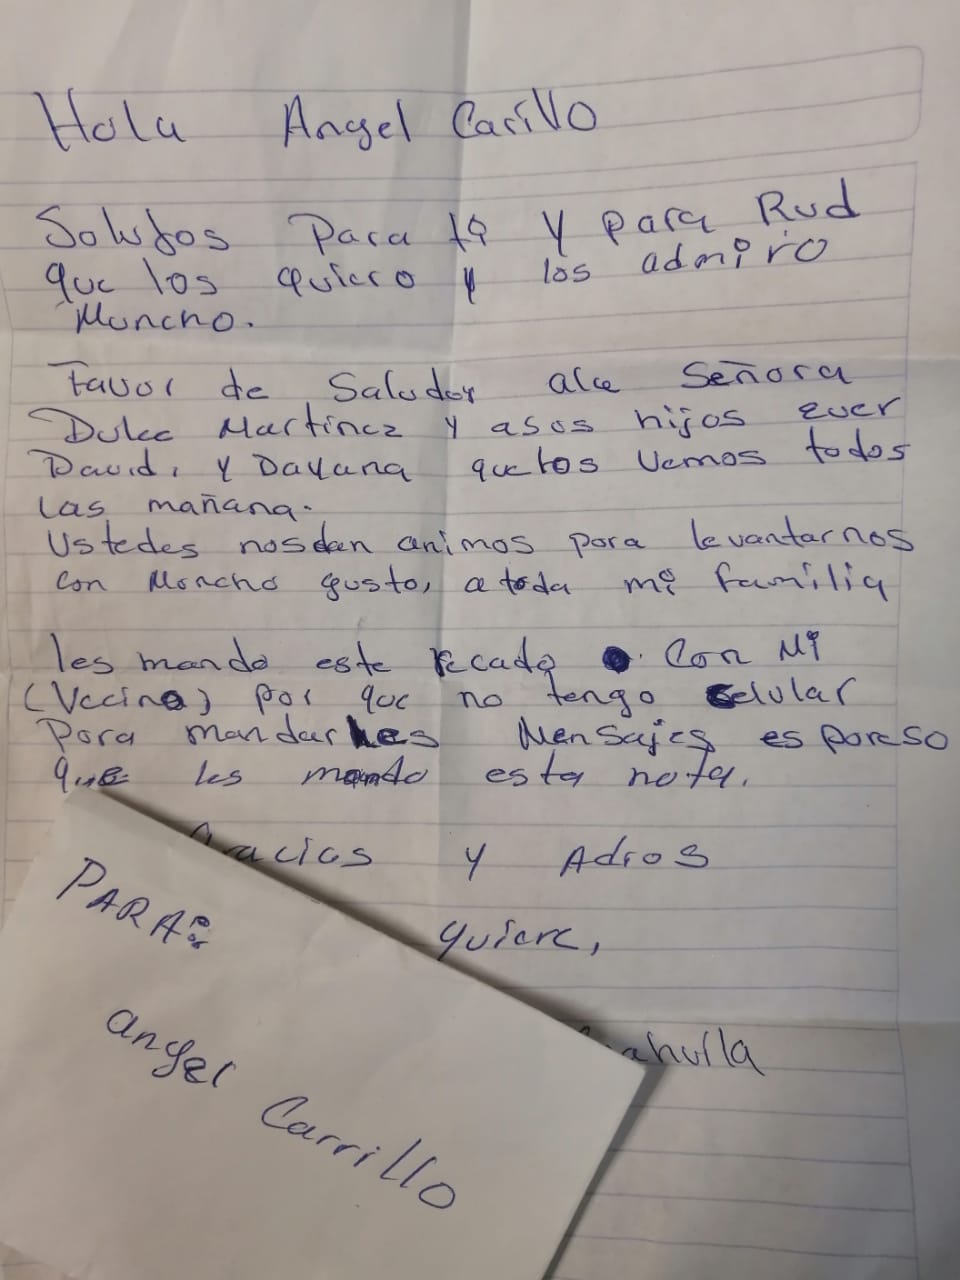 Hola Angel Carillo
Solutos Para tq Y para Rud
que los quiero y los admiro
Muncho.
Favor de Saludor ala Señora
Dulce Martinez y asos hijos ever
David, y Dayana quelos Vemos todos
las mañana.
Ustedes nosdan animos para levantarnos
con Moncho gusto, a toda mi familia
les mando este recado con Mi
(Vecina) por que no tengo celular
Para mandarles Mensajes es poreso
que les mando esta nota.
Gracias y Adios
quiere,
ahulla
PARA:
angel
Carrillo